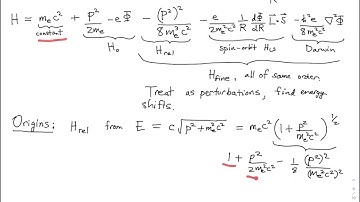 H = m_e c² + p²/2m_e − eΦ − (p²)²/8m_e³c² − e/2m_e²c² 1/R dΦ/dR L⃗·S⃗ − ħ²e/8m_e²c² ∇²Φ
constant H_o H_rel spin-orbit Darwin
H_fine, all of same order.
Treat as perturbations, find energy
shifts.
Origins: H_rel from E = c√(p²+m_e²c²) = m_e c² (1 + p²/m_e²c²)^{1/2}
1 + p²/2m_e²c² − 1/8 (p²)²/(m_e²c²)²